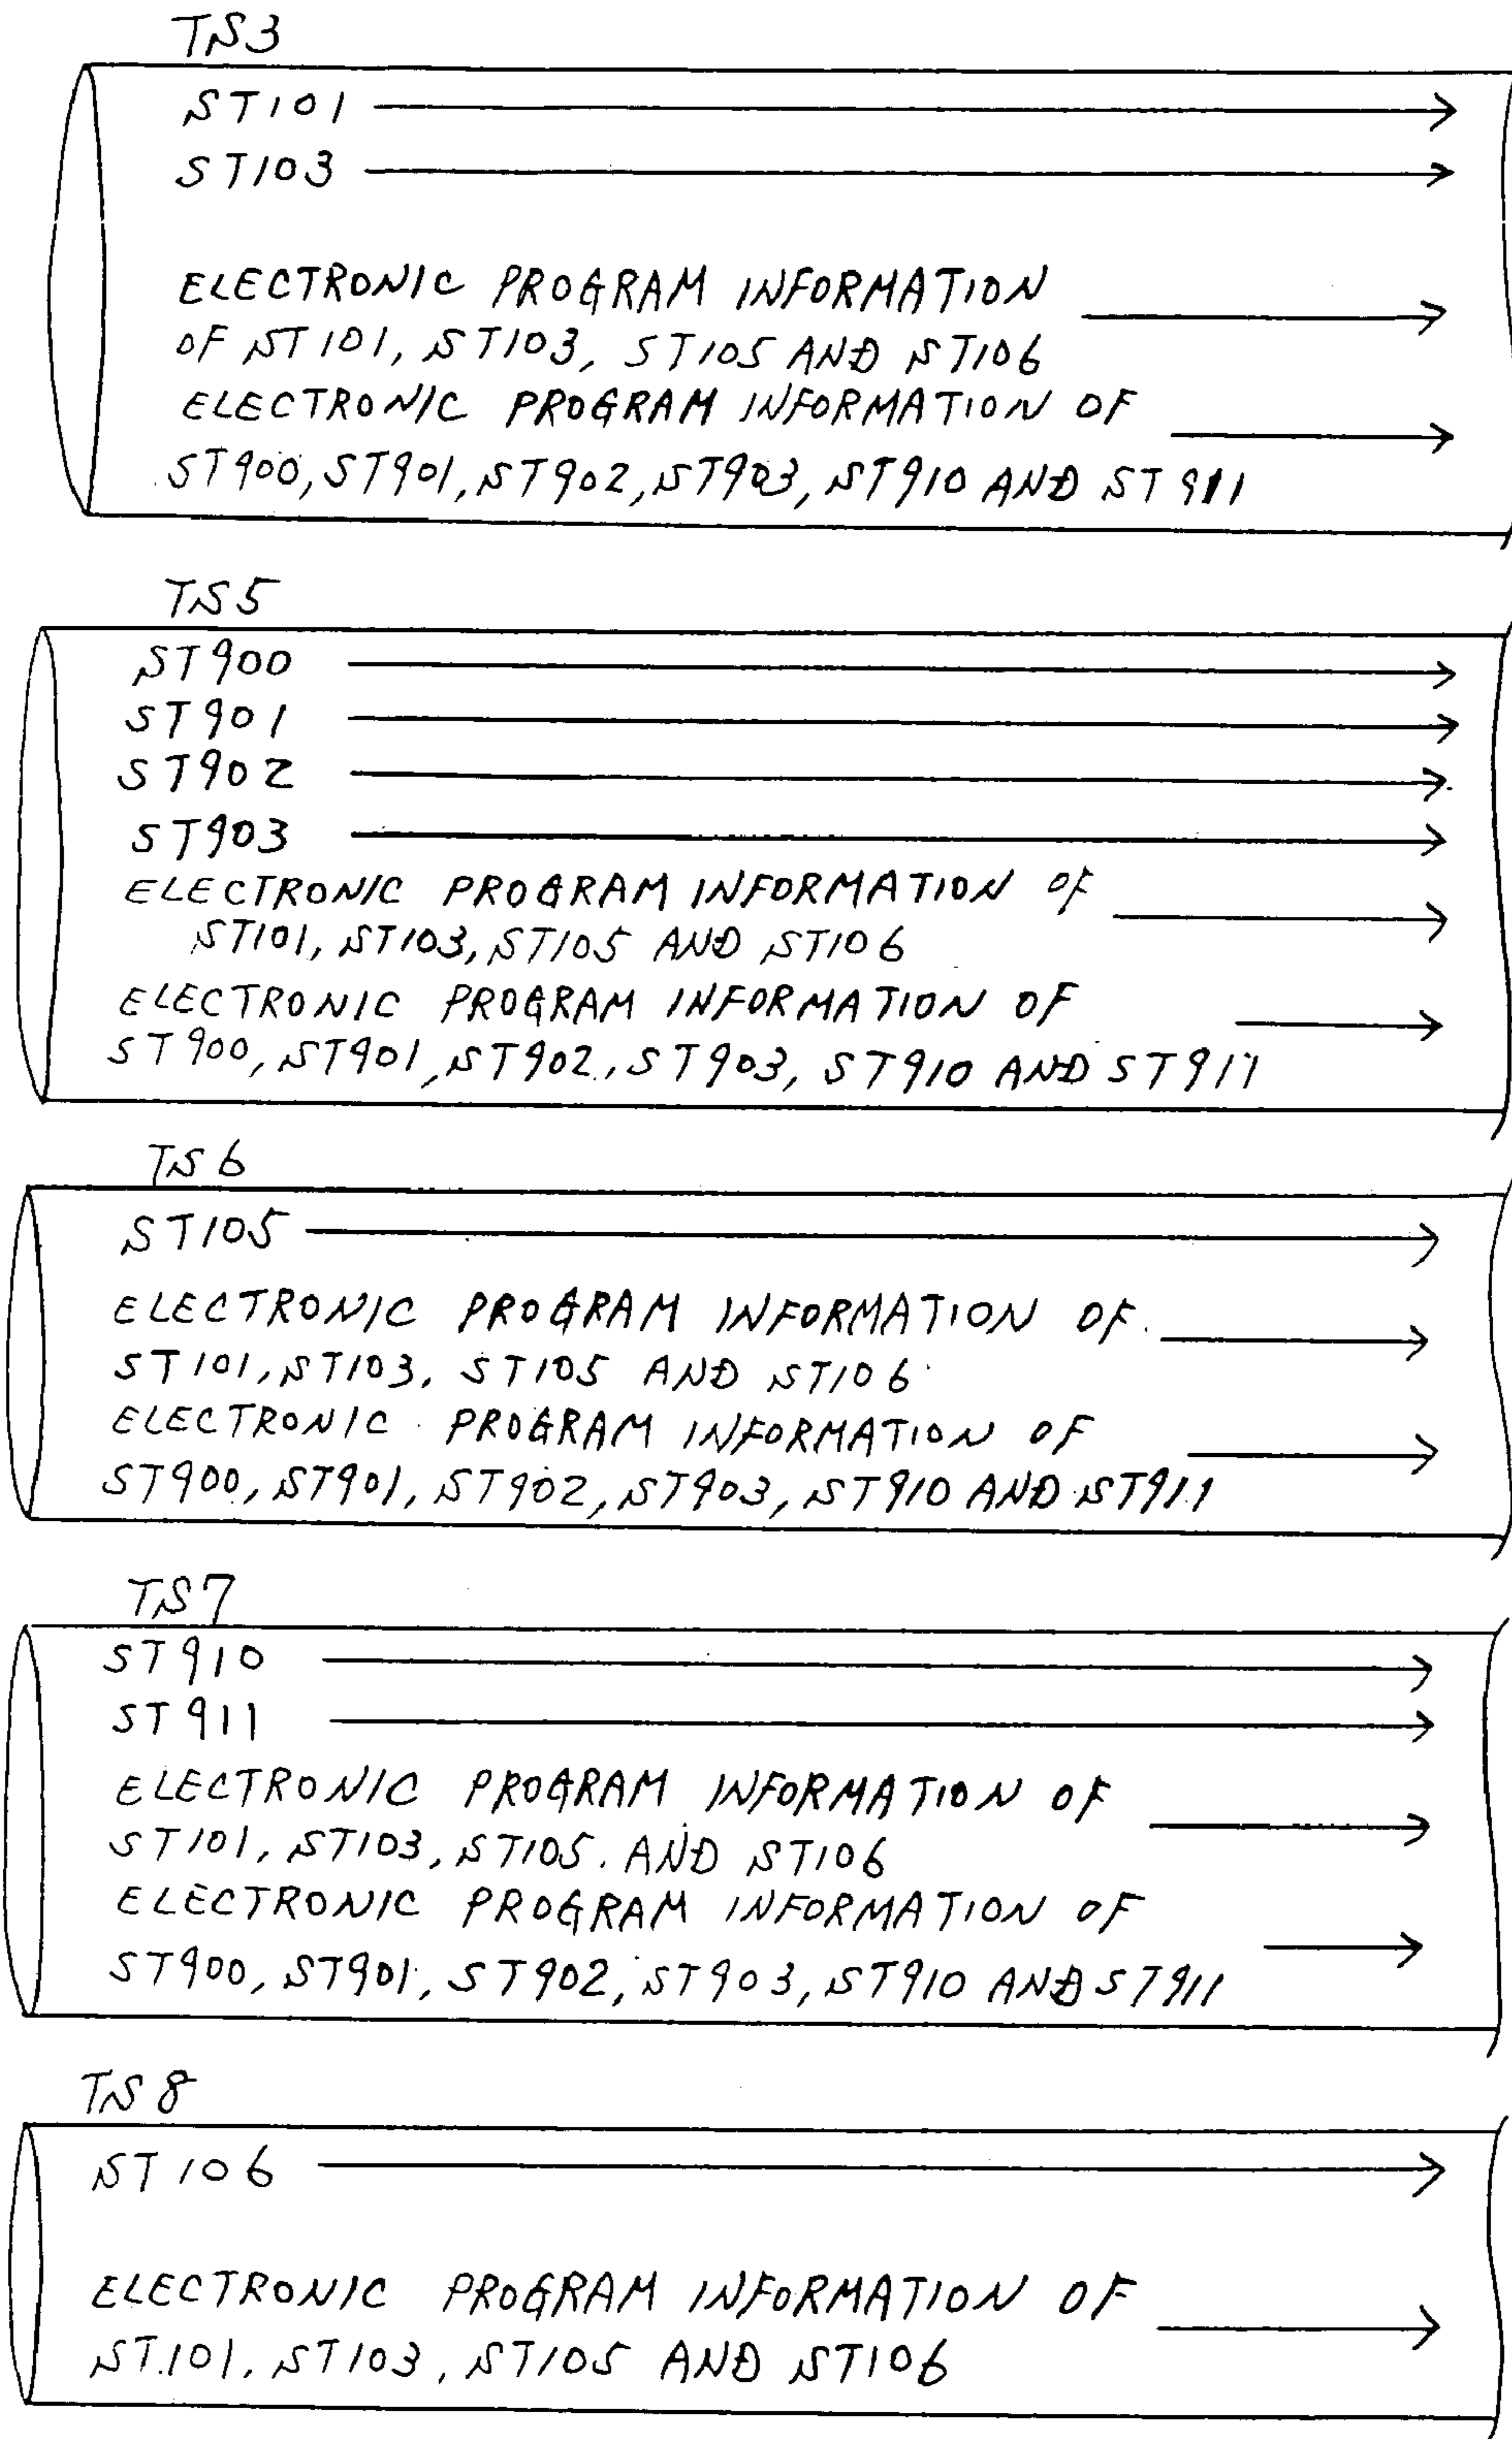 TS3
ST101
ST103
ELECTRONIC PROGRAM INFORMATION
OF ST101, ST103, ST105 AND ST106
ELECTRONIC PROGRAM INFORMATION OF
ST900, ST901, ST902, ST903, ST910 AND ST911
TS5
ST900
ST901
ST902
ST903
ELECTRONIC PROGRAM INFORMATION OF
ST101, ST103, ST105 AND ST106
ELECTRONIC PROGRAM INFORMATION OF
ST900, ST901, ST902, ST903, ST910 AND ST911
TS6
ST105
ELECTRONIC PROGRAM INFORMATION OF
ST101, ST103, ST105 AND ST106
ELECTRONIC PROGRAM INFORMATION OF
ST900, ST901, ST902, ST903, ST910 AND ST911
TS7
ST910
ST911
ELECTRONIC PROGRAM INFORMATION OF
ST101, ST103, ST105 AND ST106
ELECTRONIC PROGRAM INFORMATION OF
ST900, ST901, ST902, ST903, ST910 AND ST911
TS8
ST106
ELECTRONIC PROGRAM INFORMATION OF
ST101, ST103, ST105 AND ST106